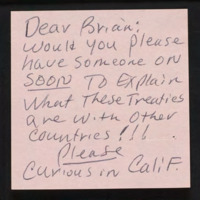 Dear Brian:
Would you please
have someone on
SOON To Explain
What These Treaties
are with other
Countries!!!
Please
Curious in Calif.